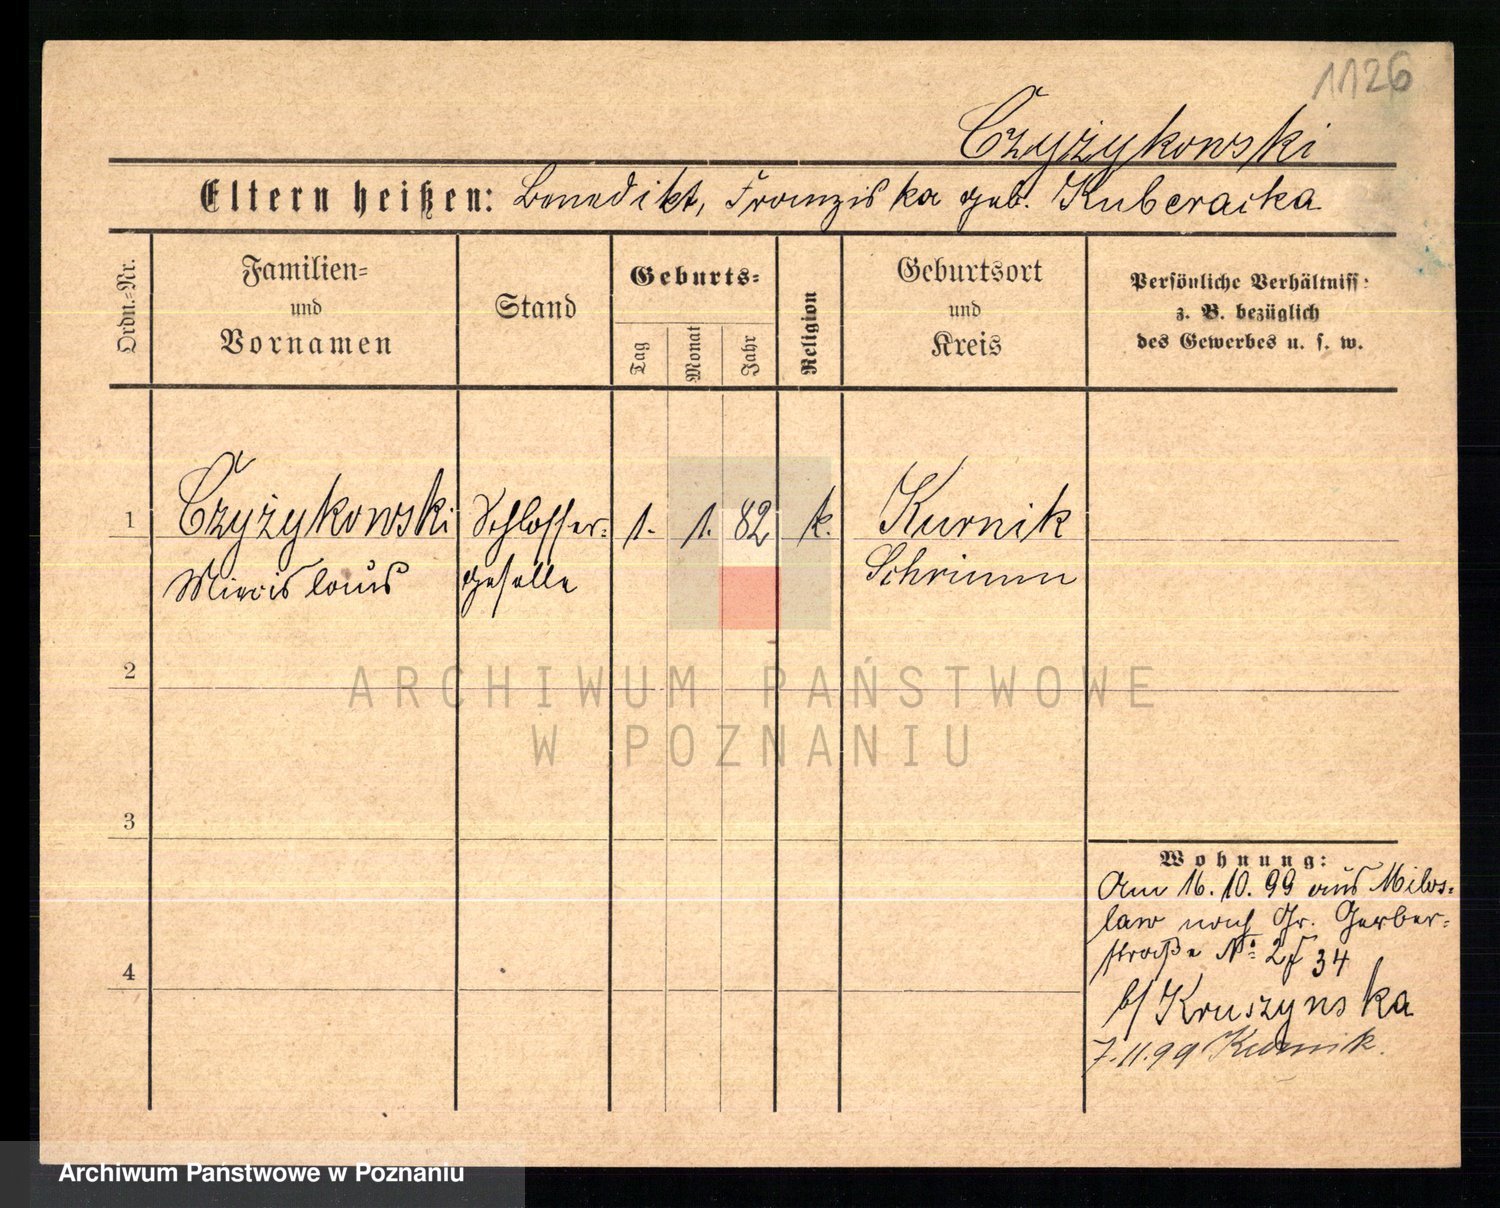 1126
Czyżykowski
Eltern heißen: Benedikt, Franziska geb. Kuberacka
Ordn.-Nr.
Familien-
und
Vornamen
Stand
Geburts-
Tag
Monat
Jahr
Religion
Geburtsort
und
Kreis
Persönliche Verhältniss:
z. B. bezüglich
des Gewerbes u. s. w.
1 Czyżykowski Schlosser- 1. 1. 82 k. Kurnik
Miecislaus geselle Schrimm
2
3
4
Wohnung:
Am 16.10.99 aus Milos-
law nach Gr. Gerber-
straße No 34
b/ Kruszynska
7.11.99 Kurnik.
ARCHIWUM PAŃSTWOWE
W POZNANIU
Archiwum Państwowe w Poznaniu